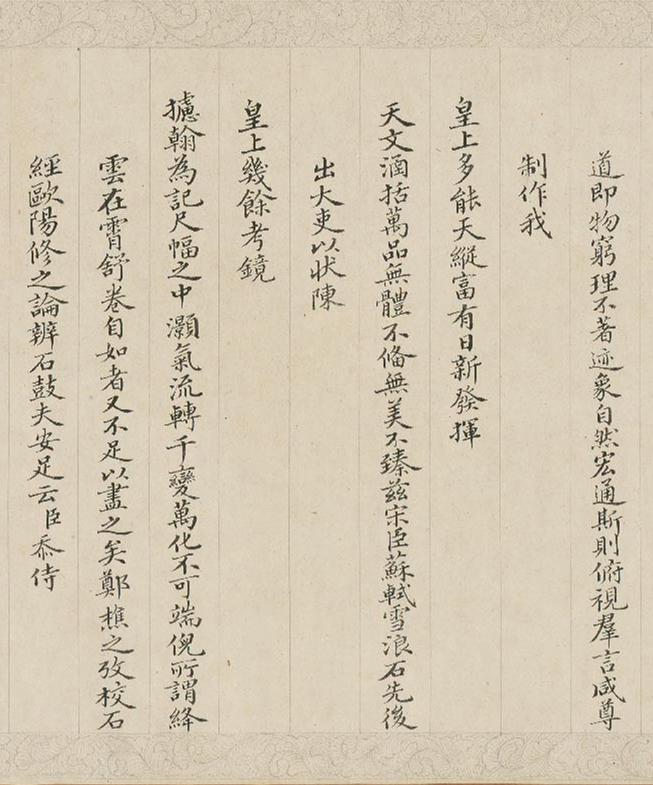 道即物窮理不著迹象自然宏通斯則俯視羣言咸尊
制作我
皇上多能天縱富有日新發揮
天文涵括萬品無體不備無美不臻茲宋臣蘇軾雪浪石先後
出大吏以狀陳
皇上幾餘考鏡
攄翰為記尺幅之中灝氣流轉千變萬化不可端倪所謂絳
雲在霄舒卷自如者又不足以盡之矣鄭樵之攷校石
經歐陽修之論辨石鼓夫安足云臣忝侍